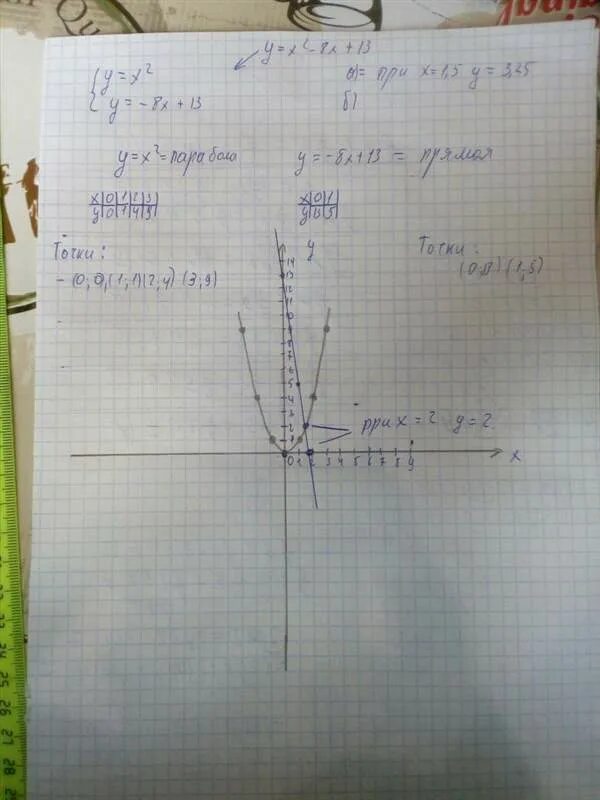 y = x² - 8x + 13
y = x²
y = -8x + 13
а) = при x = 1,5 y = 3,25
б)
y = x² = парабола
y = -8x + 13 = прямая
x | 0 | 1 | 2 | 3
y | 0 | 1 | 4 | 9
x | 0 | 1
y | 13 | 5
Точки:
- (0, 0, (1, 1) (2, 4) (3, 9)
Точки:
(0,13) (1,5)
y
14
13
12
11
10
9
8
7
6
5
4
3
2
1
при x = 2 y = 2
0 1 2 3 4 5 6 7 8 9
x
24 25 26 27 28